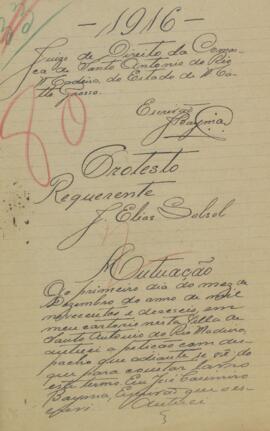 -1916-
Juizo de Direito da Comar-
ca de Santo Antonio do Rio
Madeira, do Estado de Matto
Grosso.
Escrivão
Bayma
80
Protesto
Requerente
J. Elias Sobol
Autuação
Ao primeiro dia do mez de
Dezembro do anno de mil
novecentos e deseseis, em
meu cartorio nesta Villa de
Santo Antonio do Rio Madeira,
autuei a petição com des-
pacho que adiante se vê; do
que para constar lavro
este termo. Eu, José Casimiro
Bayma, Escrivão que o es-
crevi